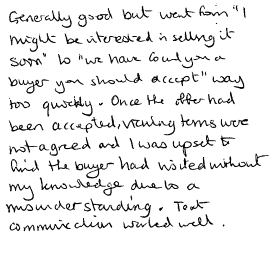 Generally good but went from "I
might be interested in selling it
soon" to "we have found you a
buyer you should accept" way
too quickly. Once the offer had
been accepted, viewing terms were
not agreed and I was upset to
find the buyer had visited without
my knowledge due to a
misunderstanding. Text
communication worked well.